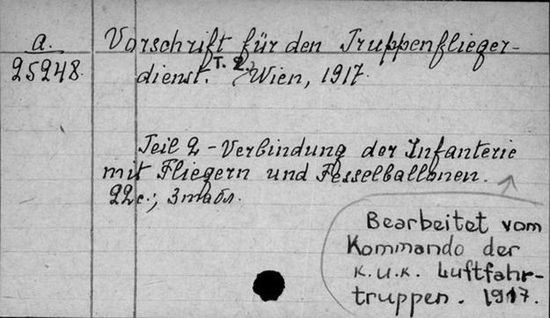 a.
25248.
Vorschrift für den Truppenflieger-
dienst. T. 2. Wien, 1917.
Teil 2 - Verbindung der Infanterie
mit Fliegern und Fesselballonen.
22с.; 3 табл.
Bearbeitet vom
Kommando der
k.u.k. Luftfahr-
truppen. 1917.